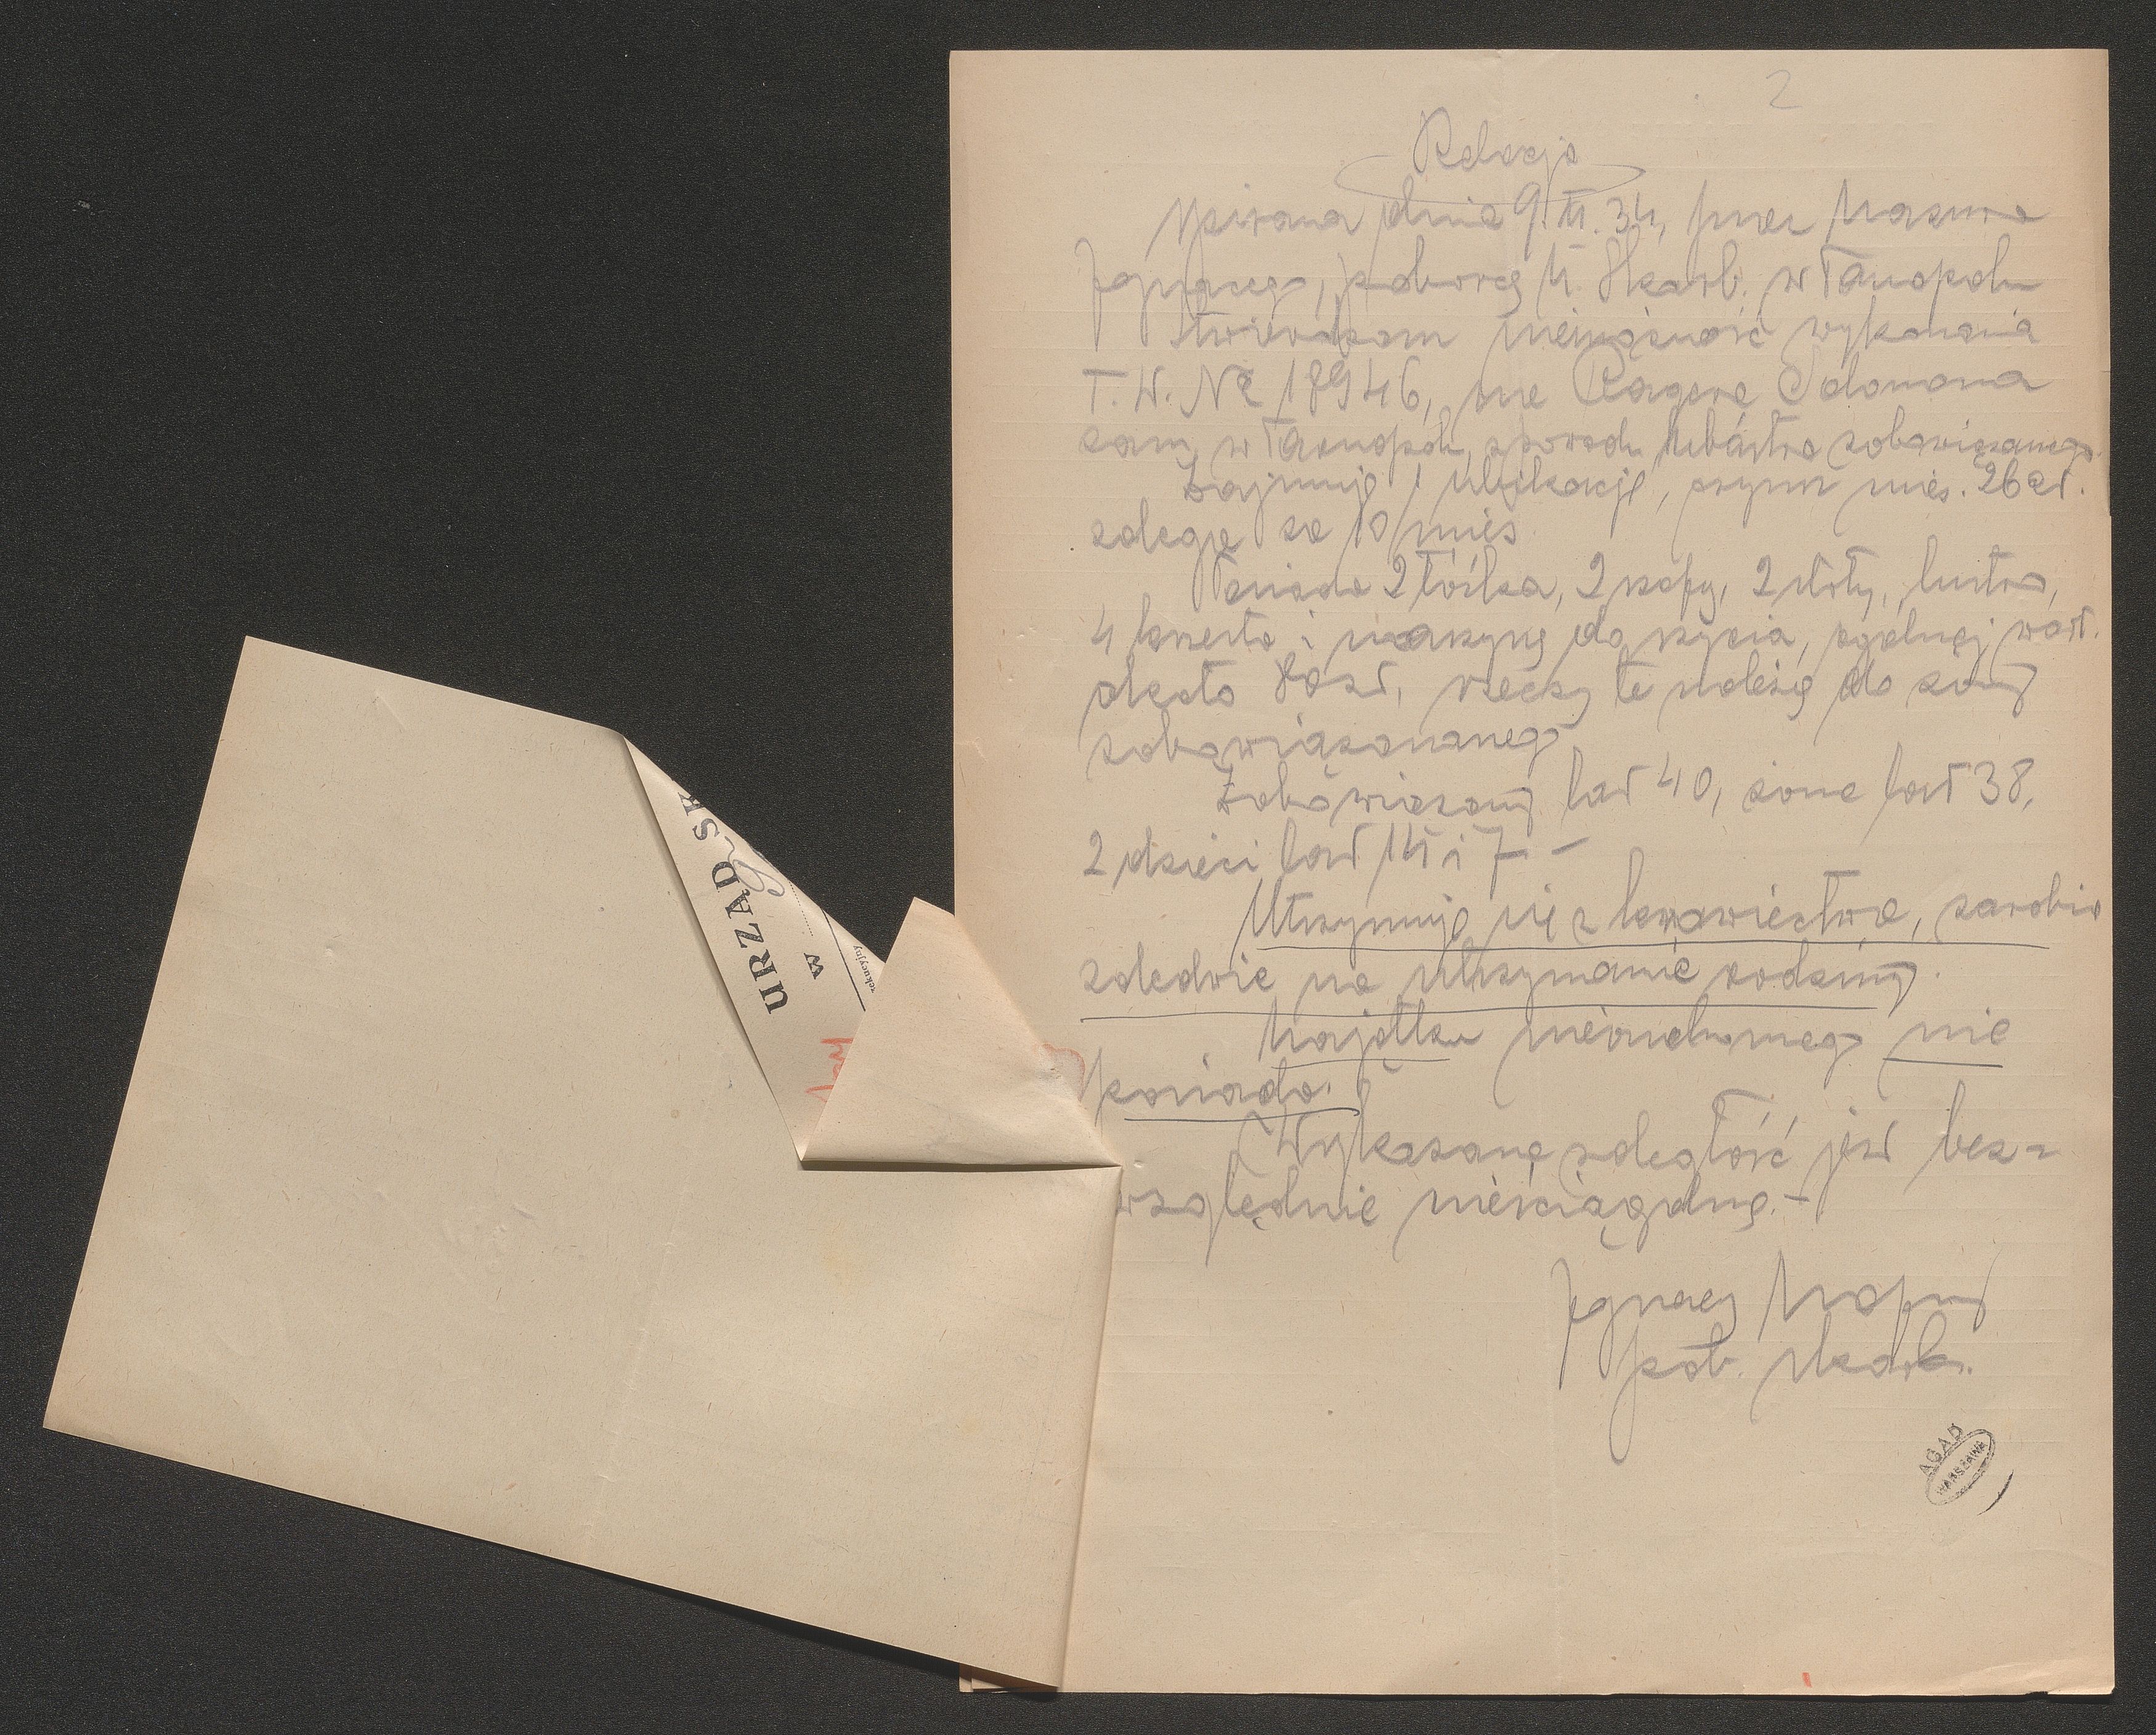 2
Relacja
spisana dnia 9.XI.34, przez Mazura
Ignacego, poborcę U. Skarb. w Tarnopolu
Stwierdzam niemożność wykonania
T.W. Nr 18946, na Salomona
zam. w Tarnopolu, z powodu ubóstwa zobowiązanego.
Zajmuje 1 ubikację, czynsz mies. 26 zł.
zalega za 10 mies.
Posiada 2 łóżka, 2 szafy, 2 stoły, lustro,
4 krzesła i maszynę do szycia, ogólnej wart.
około 80 zł, rzeczy te należą do żony
zobowiązananego
Zobowiązany lat 40, żona lat 38,
2 dzieci lat 14 i 7 –
Utrzymuje się z krawiectwa, zarobia
zaledwie na utrzymanie rodziny.
Majątku nieruchomego nie
posiada.
Wykazana zaległość jest bez=
względnie nieściągalną.–
Ignacy
pob. skarb.
AGAD
WARSZAWA
URZĄD SK
w
zekucyjny